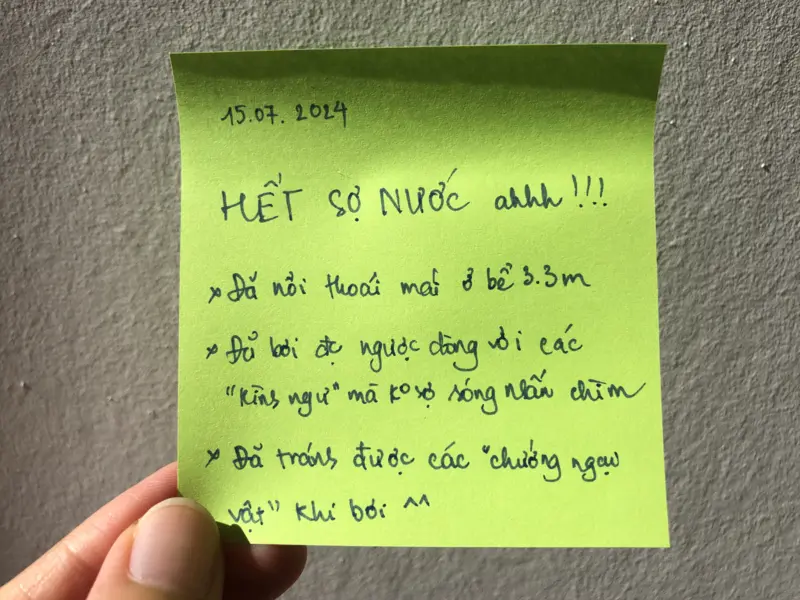 15.07.2024
HẾT SỢ NƯỚC ahhh!!!
× Đã nổi thoải mái ở bể 3.3m
× Đã bơi đc ngược dòng với các
"kình ngư" mà ko sợ sóng nhấn chìm
× Đã tránh được các "chướng ngại
vật" khi bơi ^^